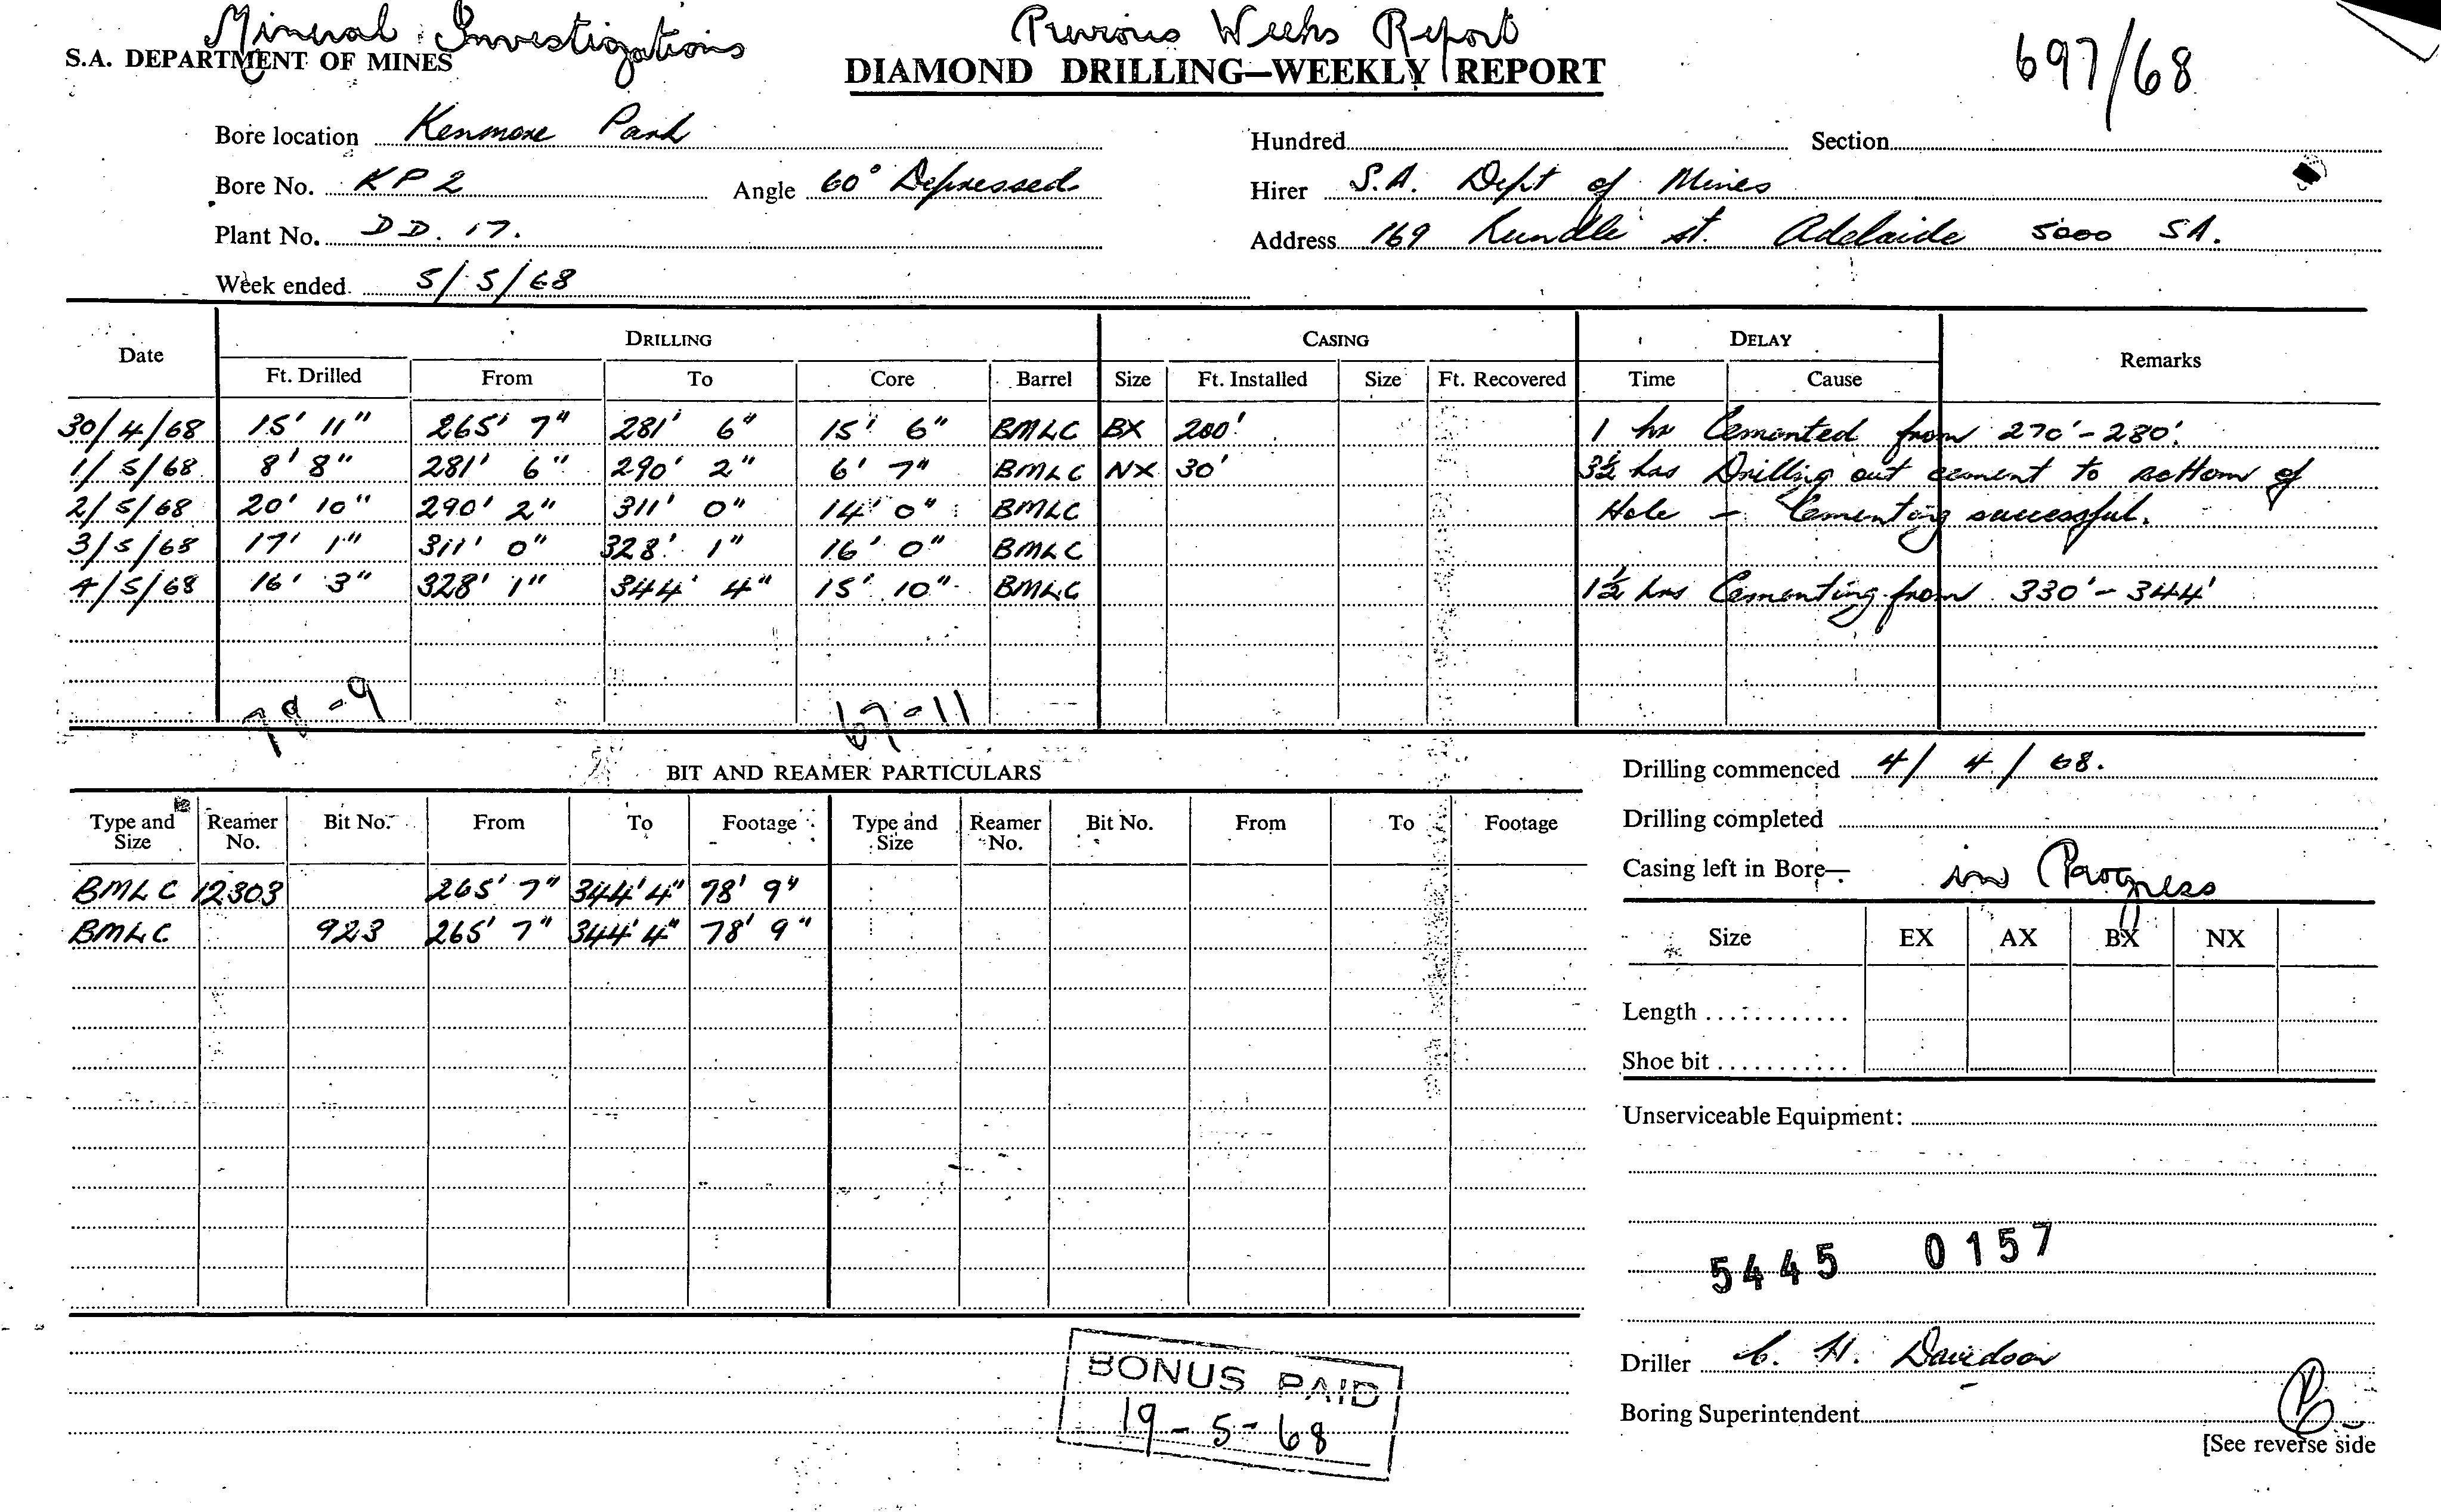 Mineral Investigations
Previous Weeks Report
697/68
S.A. DEPARTMENT OF MINES
DIAMOND DRILLING—WEEKLY REPORT
Bore location Kenmore Park
Hundred Section
Bore No. KP2 Angle 60° Depressed
Hirer S.A. Dept of Mines
Plant No. DD. 17.
Address 169 Rundle st. Adelaide 5000 SA.
Week ended 5/5/68
Date DRILLING CASING DELAY Remarks
Ft. Drilled From To Core Barrel Size Ft. Installed Size Ft. Recovered Time Cause
30/4/68 15' 11" 265' 7" 281' 6" 15' 6" BMLC BX 200' 1 hr Cemented from 270'-280'.
1/5/68 8' 8" 281' 6" 290' 2" 6' 7" BMLC NX 30' 3½ hrs Drilling out cement to bottom of
2/5/68 20' 10" 290' 2" 311' 0" 14' 0" BMLC Hole - Cementing successful.
3/5/68 17' 1" 311' 0" 328' 1" 16' 0" BMLC
4/5/68 16' 3" 328' 1" 344' 4" 15' 10" BMLC 1½ hrs Cementing from 330'-344'
78-9 67-11
BIT AND REAMER PARTICULARS
Type and Size Reamer No. Bit No. From To Footage Type and Size Reamer No. Bit No. From To Footage
BMLC 12303 265' 7" 344' 4" 78' 9"
BMLC 923 265' 7" 344' 4" 78' 9"
Drilling commenced 4/4/68.
Drilling completed
Casing left in Bore— in Progress
Size EX AX BX NX
Length
Shoe bit
Unserviceable Equipment:
5445 0157
BONUS PAID
19-5-68
Driller C. H. Davidson
Boring Superintendent
[See reverse side